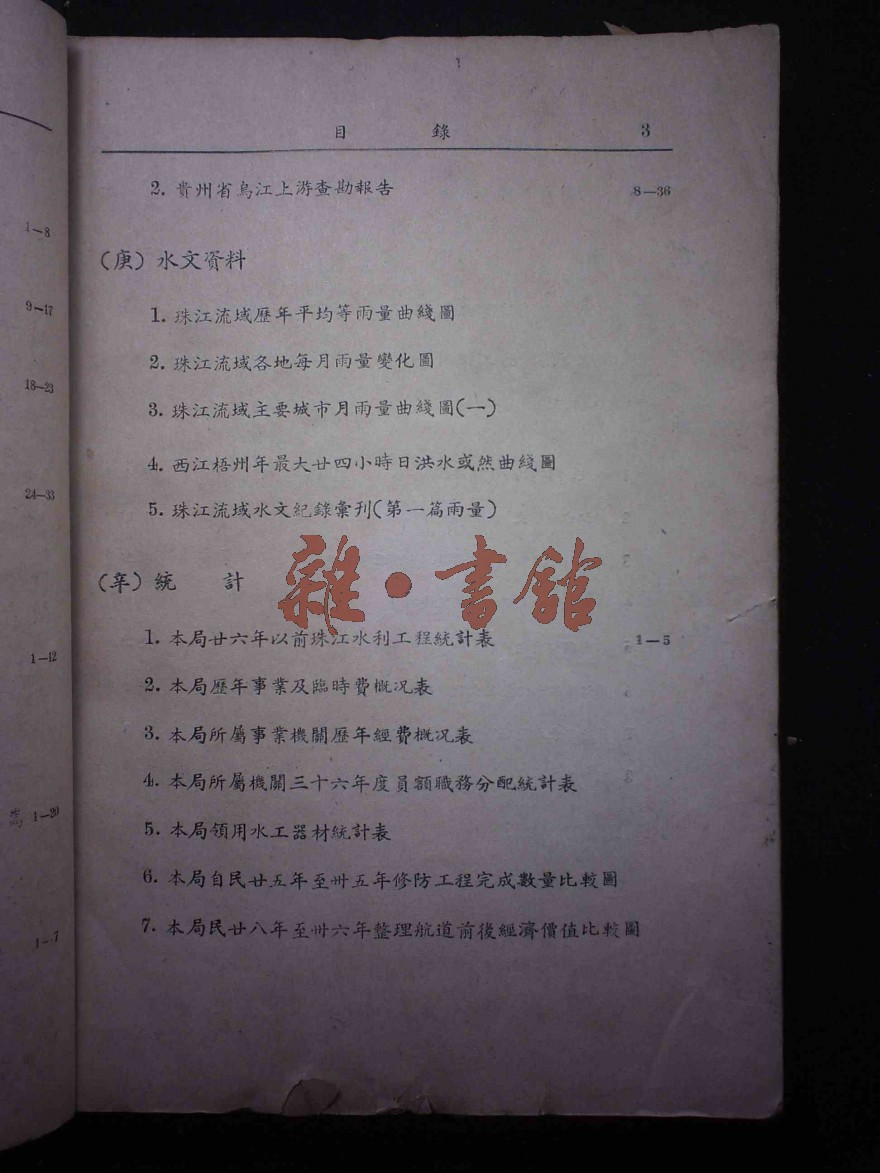 1—8
9—17
18—23
24—33
1—12
1—20
1—7
目 錄 3
2. 貴州省烏江上游查勘報告 8—36
(庚) 水文資料
1. 珠江流域歷年平均等雨量曲綫圖
2. 珠江流域各地每月雨量變化圖
3. 珠江流域主要城市月雨量曲綫圖(一)
4. 西江梧州年最大廿四小時日洪水或然曲綫圖
5. 珠江流域水文紀錄彙刊(第一篇雨量)
雜·書館
(辛) 統 計
1. 本局廿六年以前珠江水利工程統計表 1—5
2. 本局歷年事業及臨時費概况表
3. 本局所屬事業機關歷年經費概况表
4. 本局所屬機關三十六年度員額職務分配統計表
5. 本局領用水工器材統計表
6. 本局自民廿五年至卅五年修防工程完成數量比較圖
7. 本局民廿八年至卅六年整理航道前後經濟價值比較圖